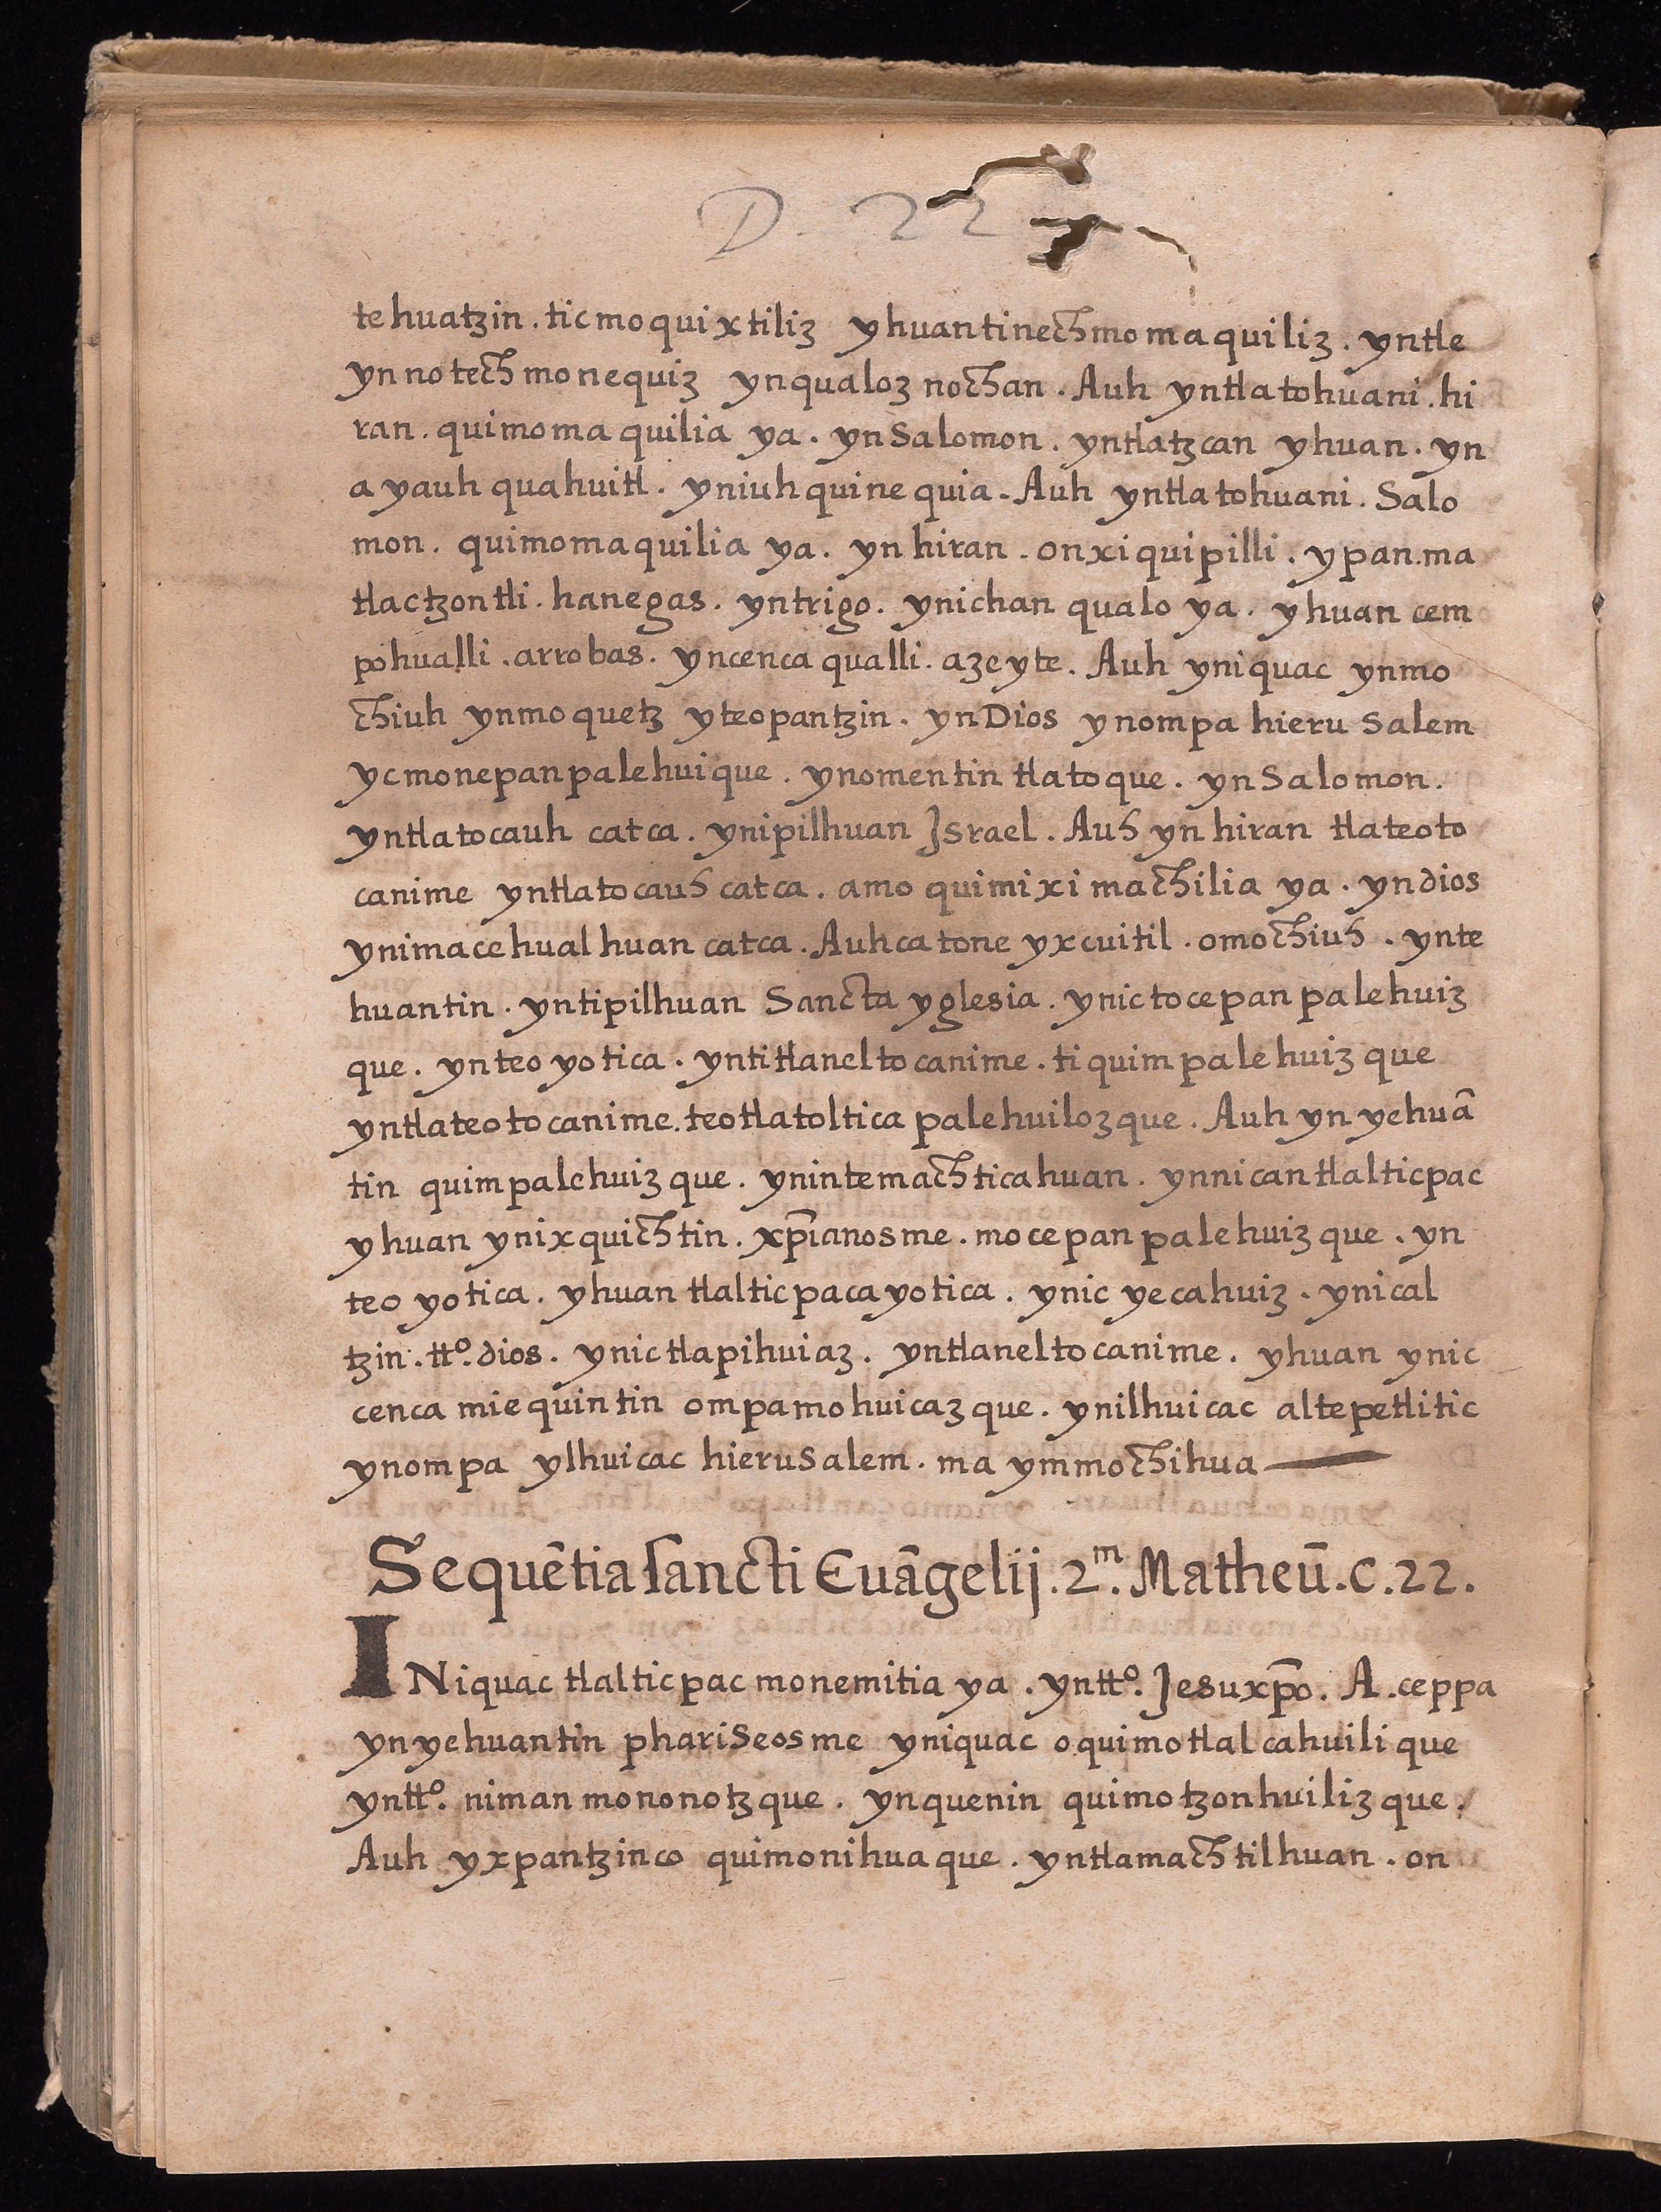 D. 22
tehuatzin. ticmoquixtiliz yhuantinechmomaquiliz. yntle
ynnotechmonequiz ynqualoz nochan. Auh yntlatohuani. hi
ran. quimomaquilia ya. ynSalomon. yntlatzcan yhuan. yn
ayauhquahuitl. yniuhquinequia. Auh yntlatohuani. Salo
mon. quimomaquilia ya. ynhiran. onxiquipilli. ypan. ma
tlactzontli. hanegas. yntrigo. ynichan qualo ya. yhuan cem
pohualli. arrobas. yncenca qualli. azeyte. Auh yniquac ynmo
chiuh ynmoquetz yteopantzin. ynDios ynompa hieruSalem
ycmonepanpalehuique. ynomentin tlatoque. ynSalomon.
yntlatocauh catca. ynipilhuan Israel. Auh ynhiran tlateoto
canime yntlatocauh catca. amo quimiximachilia ya. yndios
ynimacehualhuan catca. Auhca tone yxcuitil. omochiuh. ynte
huantin. yntipilhuan Sancta yglesia. ynictocepanpalehuiz
que. ynteoyotica. yntitlaneltocanime. tiquimpalehuizque
yntlateotocanime. teotlatoltica palehuilozque. Auh yn yehuā
tin quimpalehuizque. ynintemachticahuan. ynnican tlalticpac
yhuan ynixquichtin. xp̄ianosme. mocepanpalehuizque. yn
teoyotica. yhuan tlalticpacayotica. ynic yecahuiz. ynical
tzin. tto. dios. ynictlapihuiaz. yntlaneltocanime. yhuan ynic
cenca miequintin ompamohuicazque. ynilhuicac altepetlitic
ynompa ylhuicac hieruSalem. ma ymmochihua
Sequētia sancti Euāgelij. 2m. Matheū. C. 22.
INiquac tlalticpac monemitia ya. yntto. Jesuxp̄o. A. ceppa
ynyehuantin phariSeosme yniquac oquimotlalcahuilique
yntto. niman mononotzque. ynquenin quimotzonhuilizque.
Auh yxpantzinco quimonihuaque. yntlamachtilhuan. on